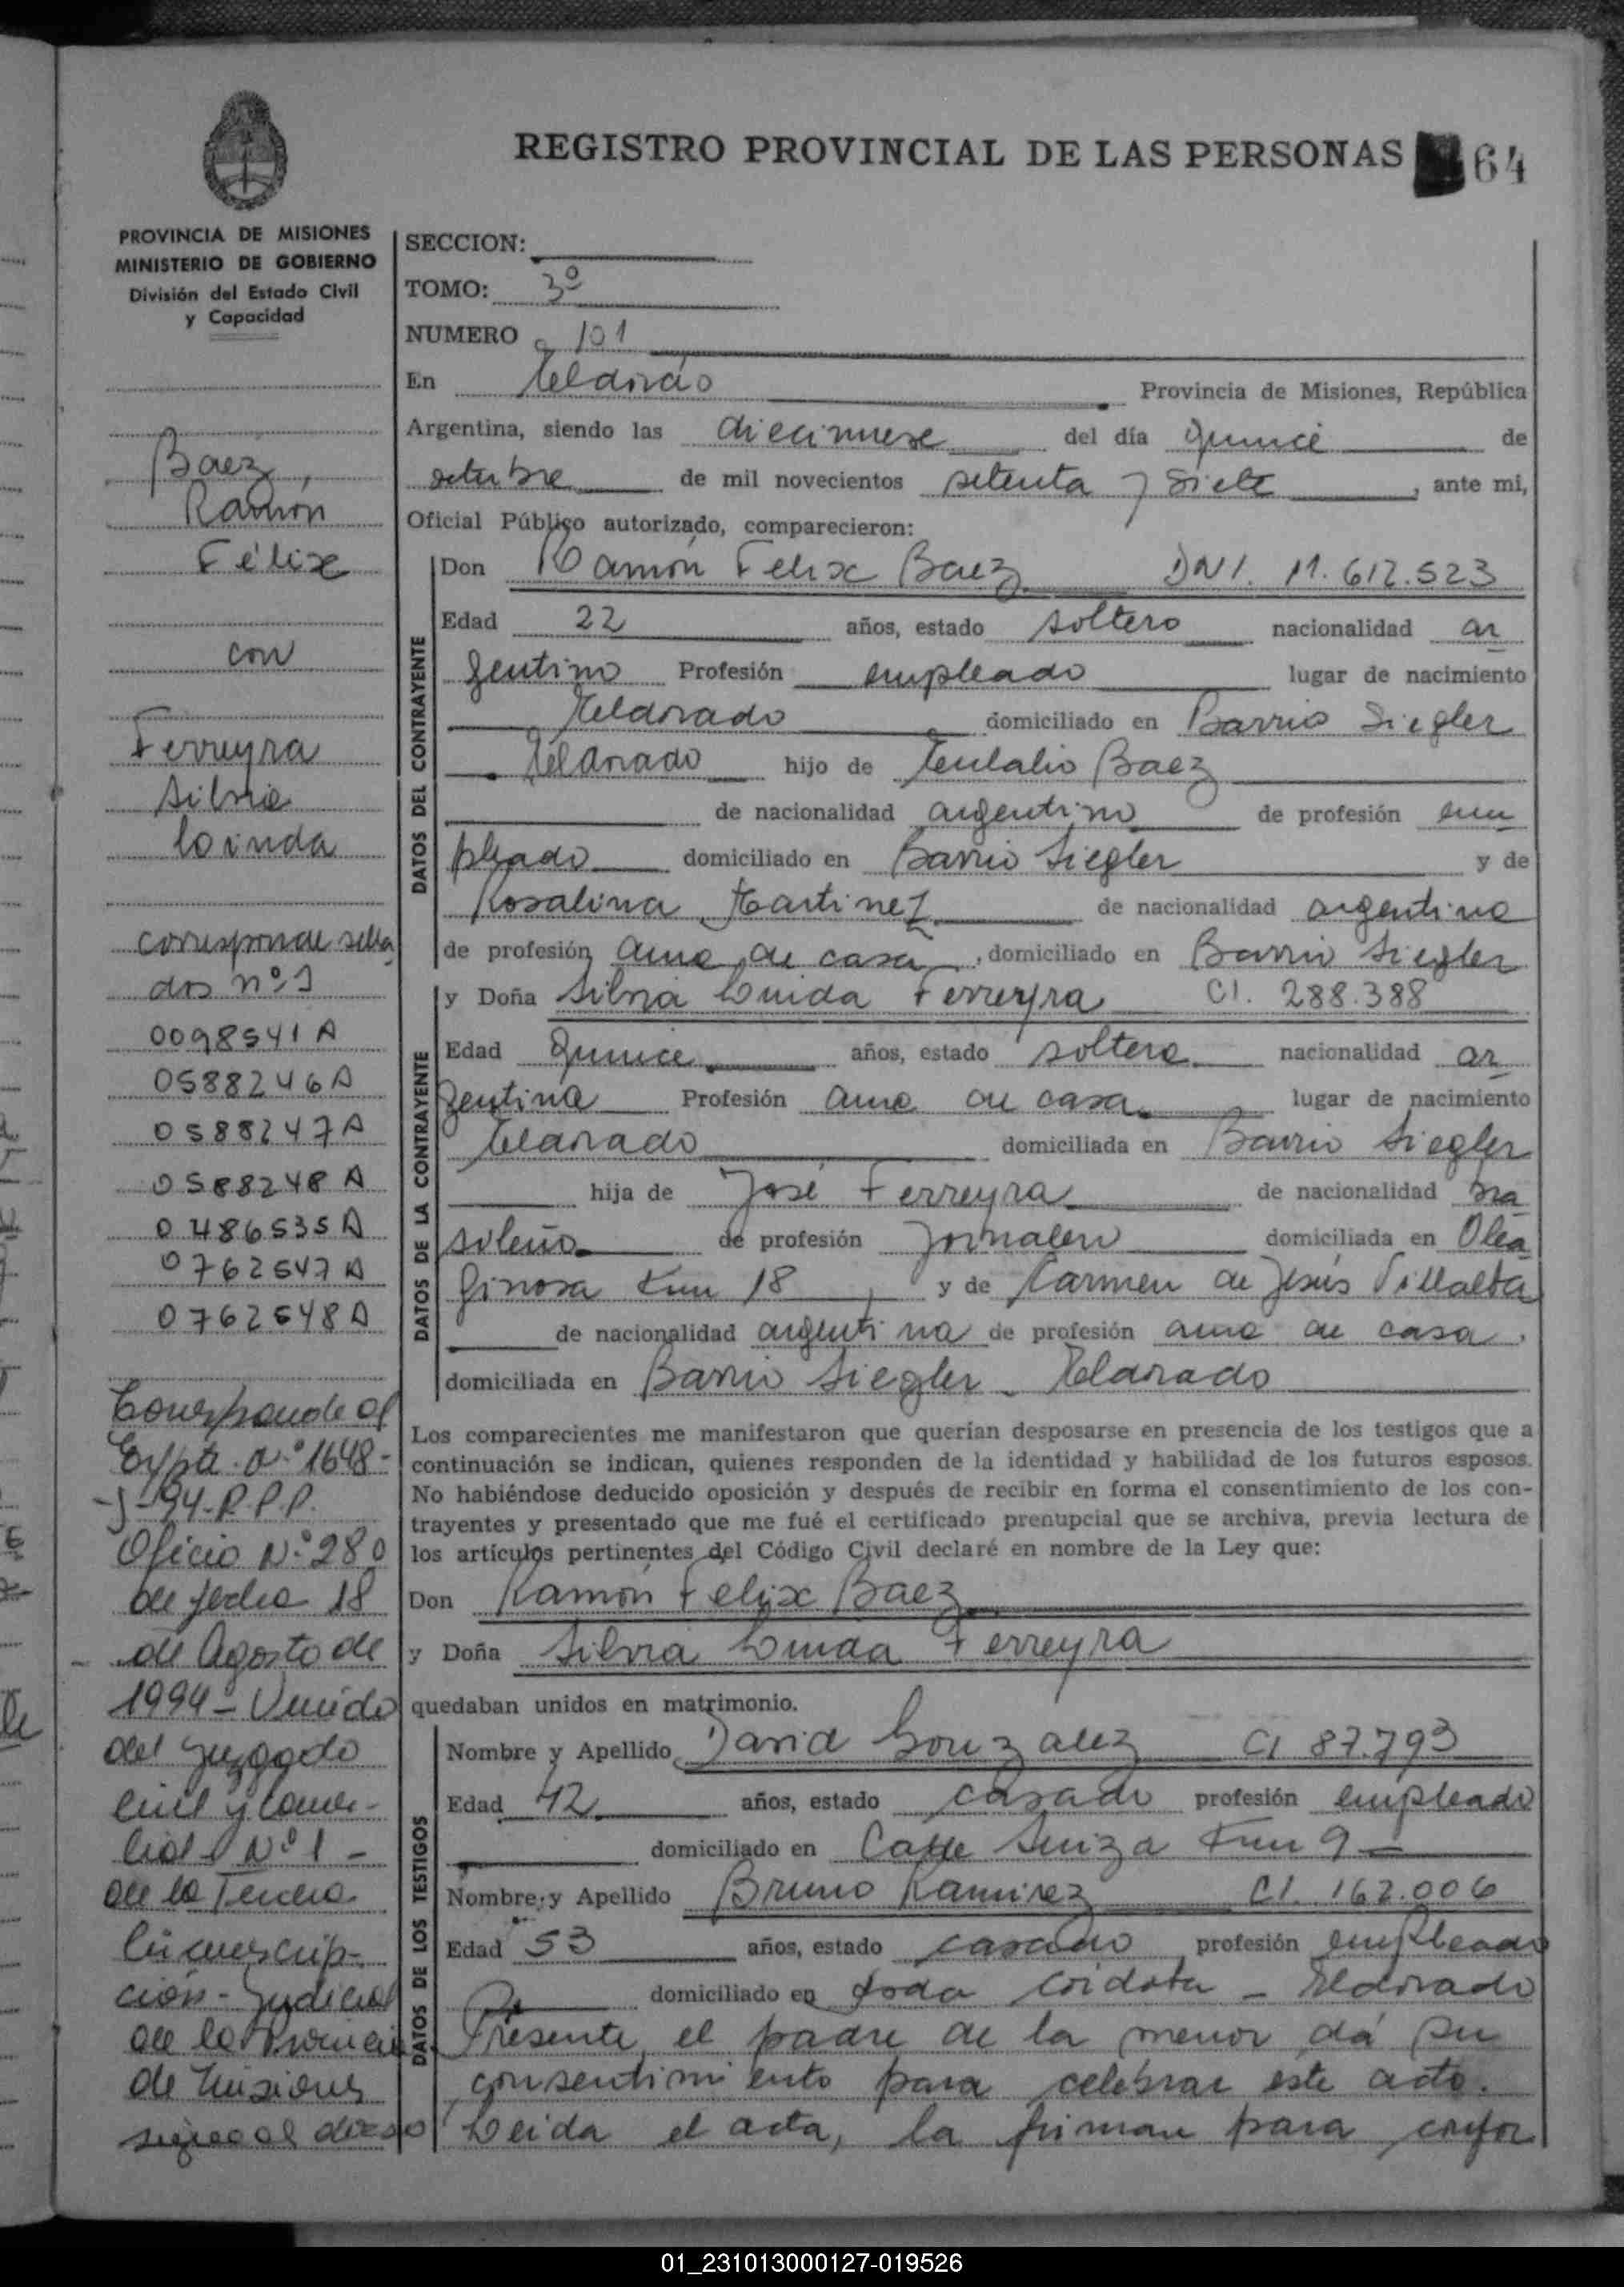 REGISTRO PROVINCIAL DE LAS PERSONAS 64
PROVINCIA DE MISIONES
MINISTERIO DE GOBIERNO
División del Estado Civil
y Capacidad
Baez,
Ramón
Félix
con
Ferreyra
Silvia
Loinda
corresponde sella
dos nº s
0098541 A
0588246 A
0588247 A
0588248 A
0486535 A
0762547 A
0762548 A
Corresponde al
Expte. Nº 1648-
-J-94-R.P.P.
Oficio Nº 280
de fecha 18
de Agosto de
1994 - Venido
del Juzgado
Civil y Comer-
cial Nº 1 -
de la Tercera
Circunscrip-
ción - Judicial
de la Provincia
de Misiones
sigue al dorso
SECCION:
TOMO: 3º
NUMERO 101
En Eldorado Provincia de Misiones, República
Argentina, siendo las diecinueve del día quince de
octubre de mil novecientos setenta y siete, ante mi,
Oficial Público autorizado, comparecieron:
DATOS DEL CONTRAYENTE
Don Ramón Felix Baez DNI. 11.612.523
Edad 22 años, estado soltero nacionalidad ar
gentino Profesión empleado lugar de nacimiento
Eldorado domiciliado en Barrio Siegler
Eldorado hijo de Eulalio Baez
de nacionalidad argentino de profesión em
pleado domiciliado en Barrio Siegler y de
Rosalina Martinez de nacionalidad argentina
de profesión ama de casa, domiciliado en Barrio Siegler
DATOS DE LA CONTRAYENTE
y Doña Silvia Luida Ferreyra CI. 288.388
Edad quince años, estado soltera nacionalidad ar
gentina Profesión ama de casa lugar de nacimiento
Eldorado domiciliada en Barrio Siegler
hija de José Ferreyra de nacionalidad bra
sileño de profesión jornalero domiciliada en Olea
ginosa Km 18, y de Carmen de Jesús Villalba
de nacionalidad argentina de profesión ama de casa,
domiciliada en Barrio Siegler - Eldorado
Los comparecientes me manifestaron que querían desposarse en presencia de los testigos que a
continuación se indican, quienes responden de la identidad y habilidad de los futuros esposos.
No habiéndose deducido oposición y después de recibir en forma el consentimiento de los con-
trayentes y presentado que me fué el certificado prenupcial que se archiva, previa lectura de
los artículos pertinentes del Código Civil declaré en nombre de la Ley que:
Don Ramón Felix Baez
y Doña Silvia Ferreyra
quedaban unidos en matrimonio.
DATOS DE LOS TESTIGOS
Nombre y Apellido David Gonzalez CI 87.793
Edad 42 años, estado casado profesión empleado
domiciliado en Calle Suiza Km 9 -
Nombre y Apellido Bruno Ramirez CI. 162.006
Edad 53 años, estado casado profesión empleado
domiciliado en cordoba - Eldorado
Presente el padre de la menor dá su
consentimiento para celebrar este acto.
Leida el acta, la firman para confor
01_231013000127-019526